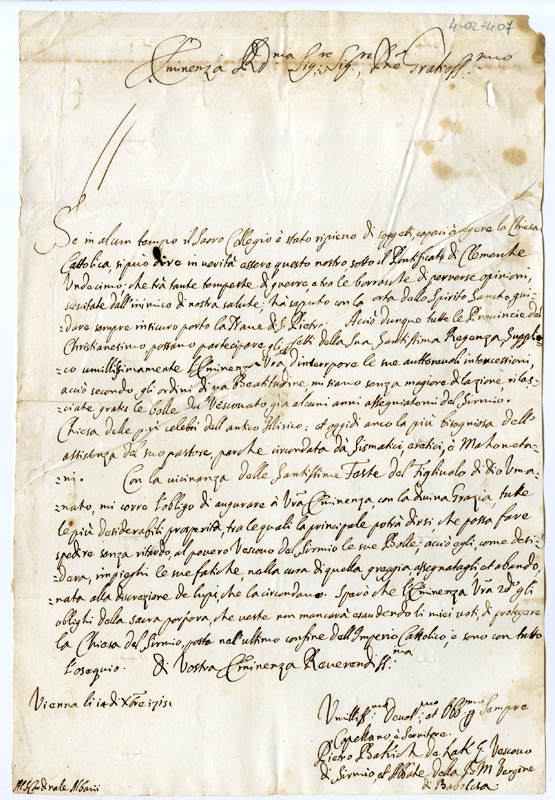 4-02-4.07
Eminenza R.ma Sig.re Sig.re
Se in alcun tempo il Sacro Collegio è stato ripieno di soggetti capaci à regere la Chiesa
Cattolica, si può dire in verità essere questo nostro sotto il Pontificato di Clemente
Undecimo: che trà tante tempeste di guerre, e tra le borrasche di perverse opinioni,
suscitate dall'inimico di nostra salute, hà saputo con la sorta dello Spirito Santo, gui-
dare sempre in sicuro porto la Naue di S. Pietro. Acciò dunque tutte le Provincie del
Christianesimo possano partecipare gli effetti della Sua Santissima Regenza, Suppli-
co umillissimamente l'Eminenza Vrã d'interpore le sue auttorevoli intercessioni,
acciò secondo gli ordini di sua Beatitudine, mi siano senza magiore dilazione rilas-
=ciate gratis le bolle del Vescouato già alcuni anni assegniatomi del Sirmio.
Chiesa delle più celebri dell'antico Illirico; et oggidi anco la più bisogniosa dell'
assistenza del suo pastore, perche circondata dà Sismatici, eretici, è Mahometa-
=ni. Con la uicinanza delle Santissime Feste del Figliuolo di dio Uma-
=nato, mi corre l'obligo di augurare à Vrã Eminenza con la diuina Grazia, tutte
le più desiderabili prosperità, tra le quali la principale potrà dirsi che possa fare
spedire senza ritardo, al pouero Vescouo del Sirmio le sue Bolle; acciò egli, come desi-
=dera, impieghi le sue fatiche, nella cura di quella greggia assegnatagli et abando-
=nata alla discrezione de lupi, che la circondano. Spero che l'Eminenza Vrã
oblighi della sacra porpora, che ueste non mancarà esaudendo li miei uoti, di proteggere
la Chiesa del Sirmio, posta nell'ultimo confine dell'Imperio Cattolico, e sono con tutto
l'osequio. Di Vostra Eminenza Reverendiss.ma
Vienna li 14 di Xbre 1715
Umiliss.mo Devot.mo et Obb.mo Sempre
Capellano è Servitore.
Pietro Bakich de Lak E. Vescouo
di Sirmio, et Abbate della B. M. Vergine
di
Al Sig. Cardinale Albani